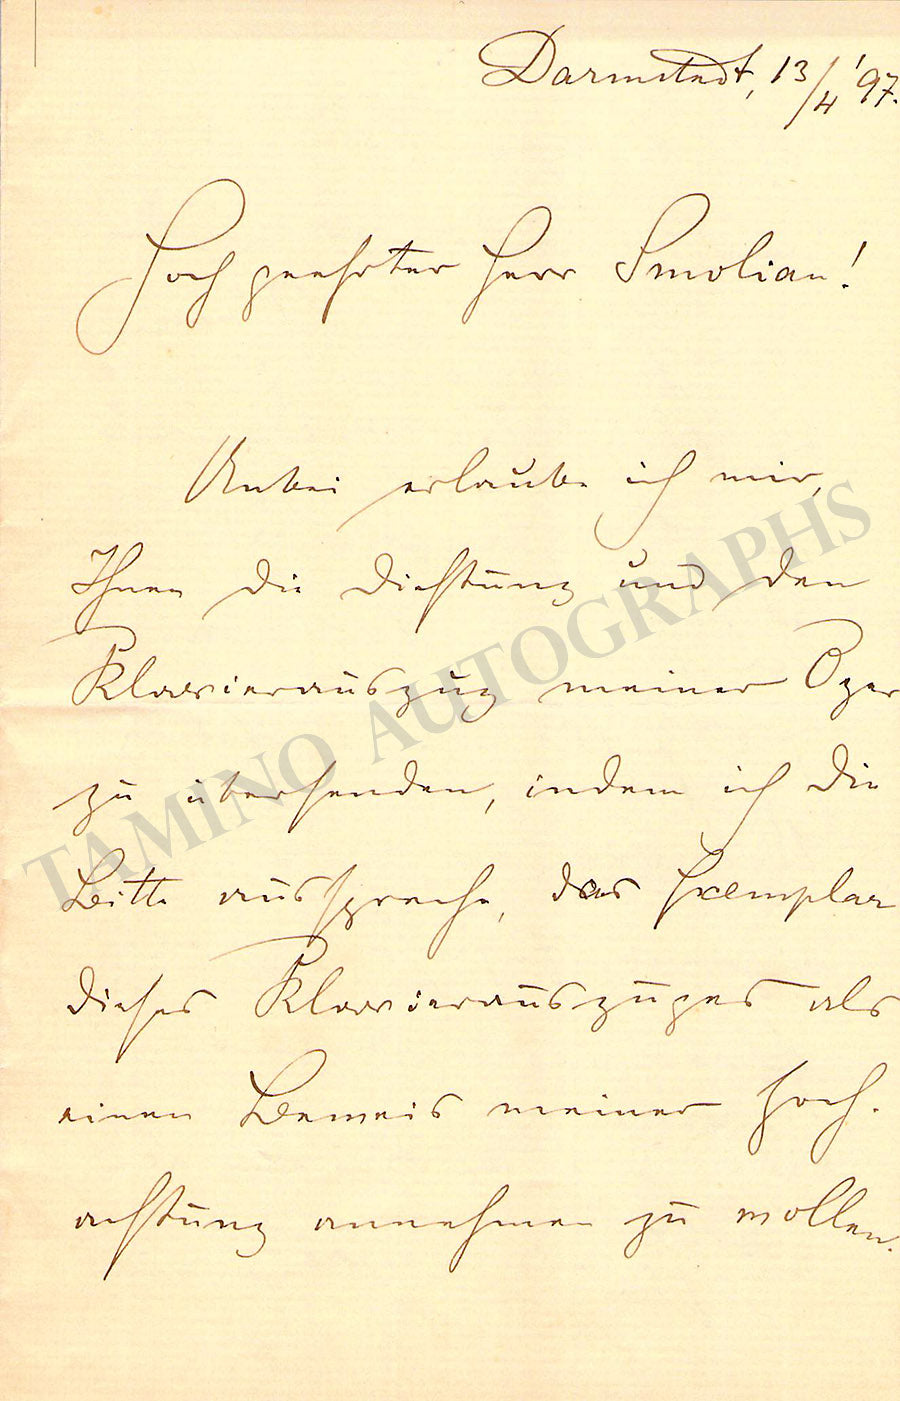 Darmstadt, 13/4 '97.
Hoch geehrter Herr Smolian!
Anbei erlaube ich mir,
Ihnen die Dichtung und den
Klavierauszug meiner Oper
zu übersenden, indem ich die
Bitte ausspreche, das Exemplar
dieses Klavierauszuges als
einen Beweis meiner Hoch-
achtung annehmen zu wollen.
TAMINO AUTOGRAPHS